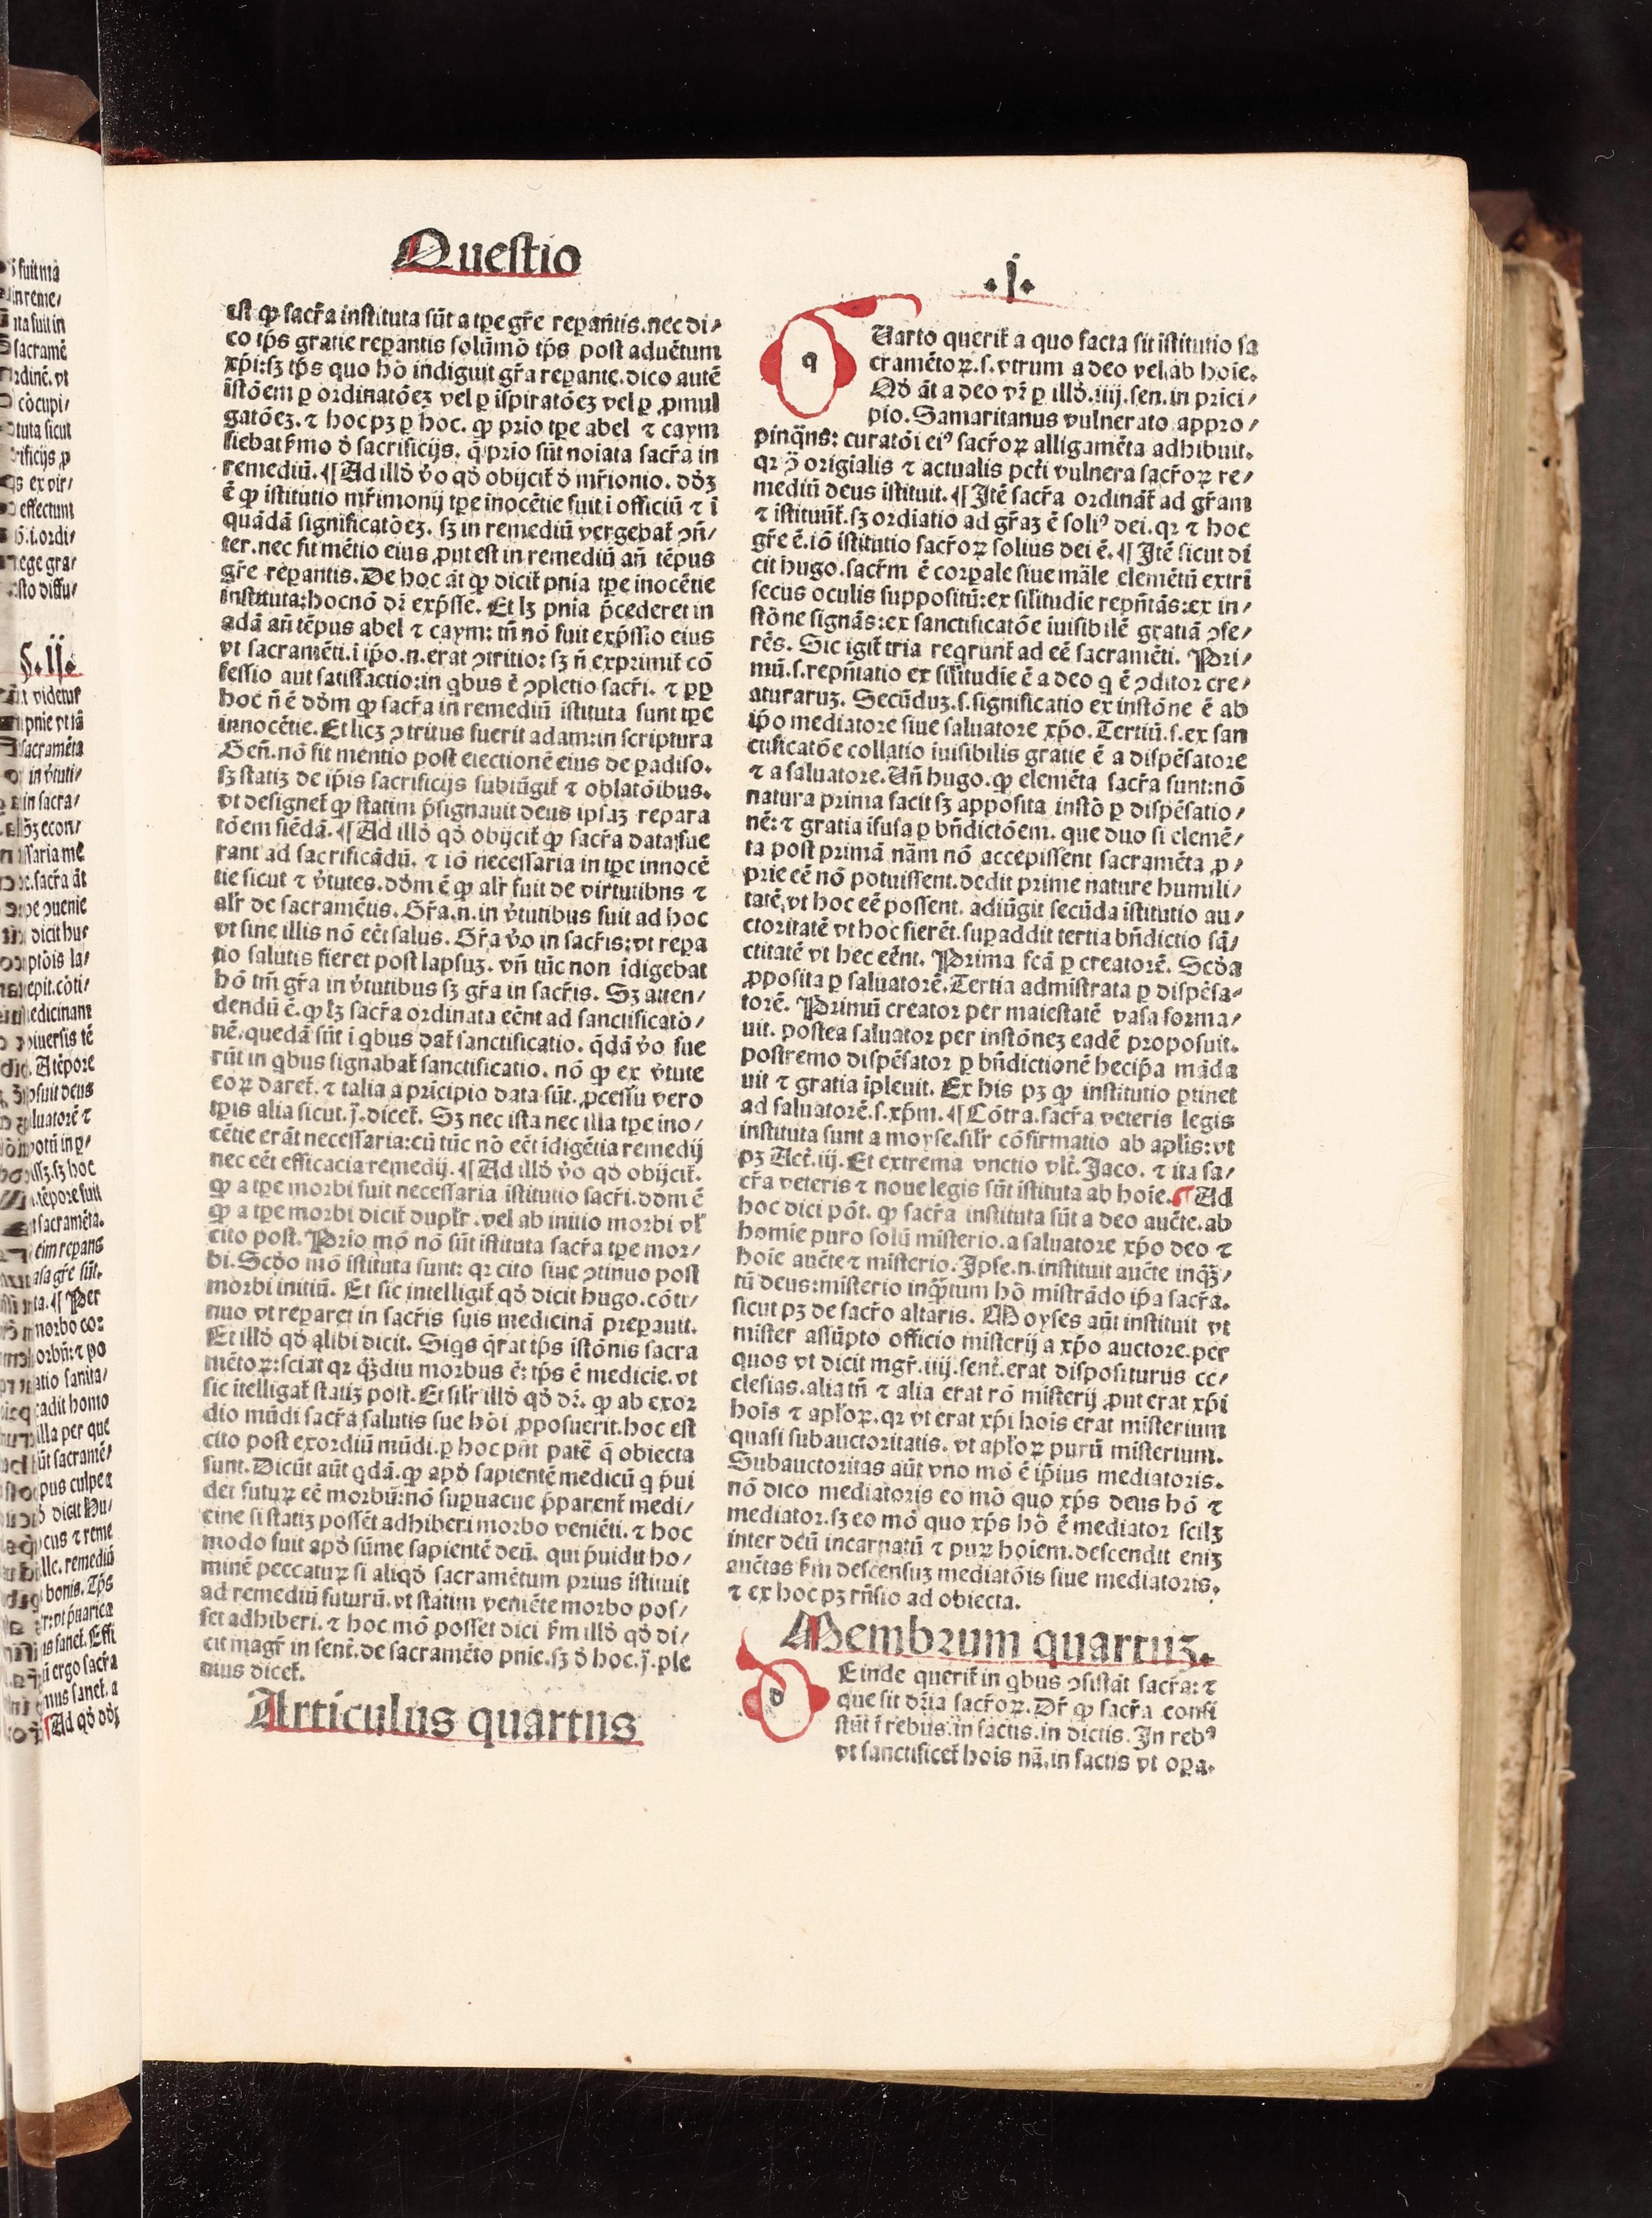 Questio
.I.
est ꝙ sacr̃a instituta sũt a tꝑe gr̃e reꝑañtis.nec di⸗
co tp̃s gratie reꝑantis solũmō tp̃s post aduẽtum
xp̃i:sꝫ tp̃s quo hõ indiguit gr̃a reꝑante.dico autẽ
ĩstõem ꝑ ordinatõeꝫ vel ꝑ ĩspiratõeꝫ vel ꝑ ꝓmul
gatõeꝫ. ⁊ hoc pꝫ ꝑ hoc. ꝙ prio tꝑe abel ⁊ caym
fiebat ẜmo ð sacrificijs. q̃ prio sũt noiata sacr̃a in
remediũ. ¶ Ad illð ṽo qð obijcit̃ ð mr̃ionio. dð́ꝫ
ẽ ꝙ istitutio mr̃imonij tꝑe inocẽtie fuit i officiũ ⁊ ĩ
quãdã significatõeꝫ. sꝫ in remediũ vergebat̃ ↄñ⸗
ter.nec fit mẽtio eius ꝓut est in remediũ añ tẽpus
gr̃e reꝑantis. De hoc ãt ꝙ dicit̃ pñia tꝑe inocẽtie
instituta:hocnõ dr̃ exp̃sse. Et lꝫ pñia p̃cederet in
adã añ tẽpus abel ⁊ caym: tñ nõ fuit exp̃ssio eius
vt sacramẽti.i ip̃o.n.erat ↄtritio: sꝫ ñ exprimit̃ cõ
fessio aut satisfactio:in qbus ẽ ↄpletio sacr̃i. ⁊ ꝓꝑ
hoc ñ ẽ dð́m ꝙ sacr̃a in remediũ istituta sunt tꝑe
innocẽtie. Et licꝫ ↄtritus fuerit adam:in scriptura
Geñ.nõ fit mentio post eiectionẽ eius de ꝑadiso.
sꝫ statiꝫ de ip̃is sacrificijs subiũgit̃ ⁊ oblatõibus.
vt designet̃ ꝙ statim p̃signauit deus ipsaꝫ repara
tõem fiẽdã. ¶ Ad illð qð obijcit̃ ꝙ sacr̃a data fue
rant ad sacrificãdũ. ⁊ iõ necessaria in tꝑe innocẽ
tie sicut ⁊ ṽtutes. dð́m ẽ ꝙ alr̃ fuit de virtutibns ⁊
alr̃ de sacramẽtis. Gr̃a.n.in ṽtutibus fuit ad hoc
vt sine illis nõ eẽt salus. Gr̃a ṽo in sacr̃is:vt repa
tio salutis fieret post lapsuꝫ. vñ tũc non ĩdigebat
hõ tm̃ gr̃a in ṽtutibus sꝫ gr̃a in sacr̃is. Sꝫ atten⸗
dendũ ẽ. ꝙ lꝫ sacr̃a ordinata eẽnt ad sanctificatõ⸗
nẽ.quedã sũt i qbus dat̃ sanctificatio. q̃dã ṽo fue
rũt in qbus signabat̃ sanctificatio. nõ ꝙ ex ṽtute
eoꝝ daret̃. ⁊ talia a prĩcipio data sũt. ꝓcessũ vero
tꝑis alia sicut.j̃.dicet̃. Sꝫ nec ista nec illa tꝑe ino⸗
cẽtie erãt necessaria:cũ tũc nõ eẽt idigẽtia remedij
nec eẽt efficacia remedij. ¶ Ad illð ṽo qð obijcit̃.
ꝙ a tꝑe morbi fuit necessaria istitutio sacr̃i. dð́m ẽ
ꝙ a tꝑe morbi dicit̃ duplr̃. vel ab initio morbi vl̃
cito post. Prio mõ nõ sũt istituta sacr̃a tꝑe mor⸗
bi. Scð́o mõ istituta sunt: qr cito siue ↄtinuo post
morbi initiũ. Et sic intelligit̃ qð dicit hugo.cõti⸗
nuo vt repararet in sacr̃is suis medicinã preparauit.
Et illð qð alibi dicit. Siqs q̃rat tp̃s istõnis sacra
mẽtoꝝ:sciat qr q̃ꝫdiu morbus ẽ: tp̃s ẽ medicie. vt
sic itelligat̃ statiꝫ post. Et silr̃ illð qð dr̃. ꝙ ab exor
dio mũdi sacr̃a salutis sue hõi ꝓposuerit.hoc est
cito post exordiũ mũdi.ꝑ hoc pñt patẽ q̃ obiecta
sunt. Dicũt aũt qdã. ꝙ apð sapientẽ medicũ q p̃ui
det futuꝝ eẽ morbũ:nõ suꝑuacue p̃parent̃ medi⸗
cine si statiꝫ possẽt adhiberi morbo veniẽti. ⁊ hoc
modo fuit apð sũme sapientẽ deũ. qui p̃uidit ho⸗
minẽ peccatuꝝ si aliqð sacramẽtum prius istituit
ad remediũ futurũ. vt statim veniẽte morbo pos⸗
set adhiberi. ⁊ hoc mõ posset dici ẜm illð qð di⸗
cit magr̃ in sent̃.de sacramẽto pnie.sꝫ ð hoc.j̃.ple
nius dicet̃.
Articulus quartus
q
Uarto querit̃ a quo facta sit istitutio sa
cramẽtoꝝ.s.vtrum a deo vel ab hoie.
Qð ãt a deo vr̃ ꝑ illð.iiij.sen.in prĩci⸗
pio. Samaritanus vulnerato appro⸗
pinq̃ns: curatõi eiꝰ sacr̃oꝝ alligamẽta adhibuit.
qr ↄ̃ origialis ⁊ actualis pctĩ vulnera sacr̃oꝝ re⸗
mediũ deus istituit. ¶ Itẽ sacr̃a ordinãt̃ ad gr̃am
⁊ istituũt̃.sꝫ ordiatio ad gr̃aꝫ ẽ soliꝰ dei. qr ⁊ hoc
gr̃e ẽ.iõ istitutio sacr̃oꝝ solius dei ẽ. ¶ Itẽ sicut di
cit hugo.sacr̃m ẽ corꝑale siue mãle elemẽtũ extri
secus oculis suppositũ:ex silitudie repñtãs:ex in⸗
stõne signãs:ex sanctificatõe iuisibilẽ gratiã ↄfe⸗
rẽs. Sic igit̃ tria reqrunt̃ ad eẽ sacramẽti. Pri⸗
mũ.s.repñtatio ex silitudie ẽ a deo q ẽ ↄditor cre⸗
aturaruꝫ. Secũduꝫ.s.significatio ex instõne ẽ ab
ip̃o mediatore siue saluatore xp̃o. Tertiũ.s.ex san
ctificatõe collatio iuisibilis gratie ẽ a dispẽsatore
⁊ a saluatore. Uñ hugo. ꝙ elemẽta sacr̃a sunt:nõ
natura prima facit sꝫ apposita instõ ꝑ dispẽsatio⸗
nẽ: ⁊ gratia ifusa ꝑ bñdictõem. que duo si elemẽ⸗
ta post primã nãm nõ accepissent sacramẽta ꝓ⸗
prie eẽ nõ potuissent.dedit prime nature humili⸗
tatẽ,vt hoc eẽ possent. adiũgit secũda istitutio au⸗
ctoritatẽ vt hoc fierẽt.suꝑaddit tertia bñdictio sã⸗
ctitatẽ vt hec eẽnt. Prima fcã ꝑ creatorẽ. Scð́a
ꝓposita ꝑ saluatorẽ. Tertia admistrata ꝑ dispẽsa⸗
torẽ. Primũ creator per maiestatẽ vasa forma⸗
uit. postea saluator per instõnez eadẽ proposuit.
postremo dispẽsator ꝑ bñdictionẽ hecip̃a mũda
uit ⁊ gratia ipleuit. Ex his pꝫ ꝙ institutio ꝑtinet
ad saluatorẽ.s.xp̃m. ¶ Cõtra.sacr̃a veteris legis
instituta sunt a moyse.silr̃ cõfirmatio ab apl̃is:vt
pꝫ Act̃.iij. Et extrema vnctio vlt̃. Jaco. ⁊ ita sa⸗
cr̃a veteris ⁊ noue legis sũt istituta ab hoie. ¶ Ad
hoc dici põt. ꝙ sacr̃a instituta sũt a deo auctẽ.ab
homie puro solũ misterio.a saluatore xp̃o deo ⁊
hoie auctẽ ⁊ misterio. Ipse.n.instituit auctẽ inqꝫ̃⸗
tũ deus:misterio inq̃tum hõ mistrãdo ip̃a sacr̃a.
sicut pꝫ de sacr̃o altaris. Moyses aũt instituit vt
mister assũpto officio misterij a xp̃o auctore.per
quos vt dicit mgr̃.iiij.sent̃.erat dispositurus ec⸗
clesias.alia tñ ⁊ alia erat rõ misterij ꝓut erat xp̃i
hois ⁊ apl̃oꝝ. qr vt erat xp̃i hois erat misterium
quasi subauctoritatis. vt apl̃oꝝ purũ misterium.
Subauctoritas aũt vno mõ ẽ ip̃ius mediatoris.
nõ dico mediatoris eo mõ quo xp̃s deus hõ ⁊
mediator.sꝫ eo mõ quo xp̃s hõ ẽ mediator scilꝫ
inter deũ incarnatũ ⁊ puꝝ hoiem.descendit eniꝫ
auctãs ẜm descensuꝫ mediatõis siue mediatoris.
⁊ ex hoc pꝫ rñsio ad obiecta.
Membrum quartuꝫ.
d
Einde querit̃ in qbus ↄsistãt sacr̃a: ⁊
que sit dr̃ia sacr̃oꝝ. Dr̃ ꝙ sacr̃a consi
stũt ĩ rebus.in factis.in dictis. In rebꝰ
vt sanctificet̃ hois nã.in factis vt oꝑa.